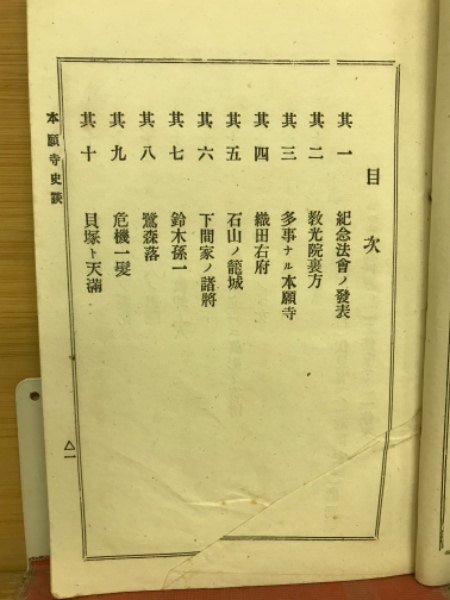 目次
其一 紀念法會ノ發表
其二 教光院裏方
其三 多事ナル本願寺
其四 織田右府
其五 石山ノ籠城
其六 下間家ノ諸將
其七 鈴木孫一
其八 鷺森落
其九 危機一髮
其十 貝塚ト天滿
本願寺史談
△一